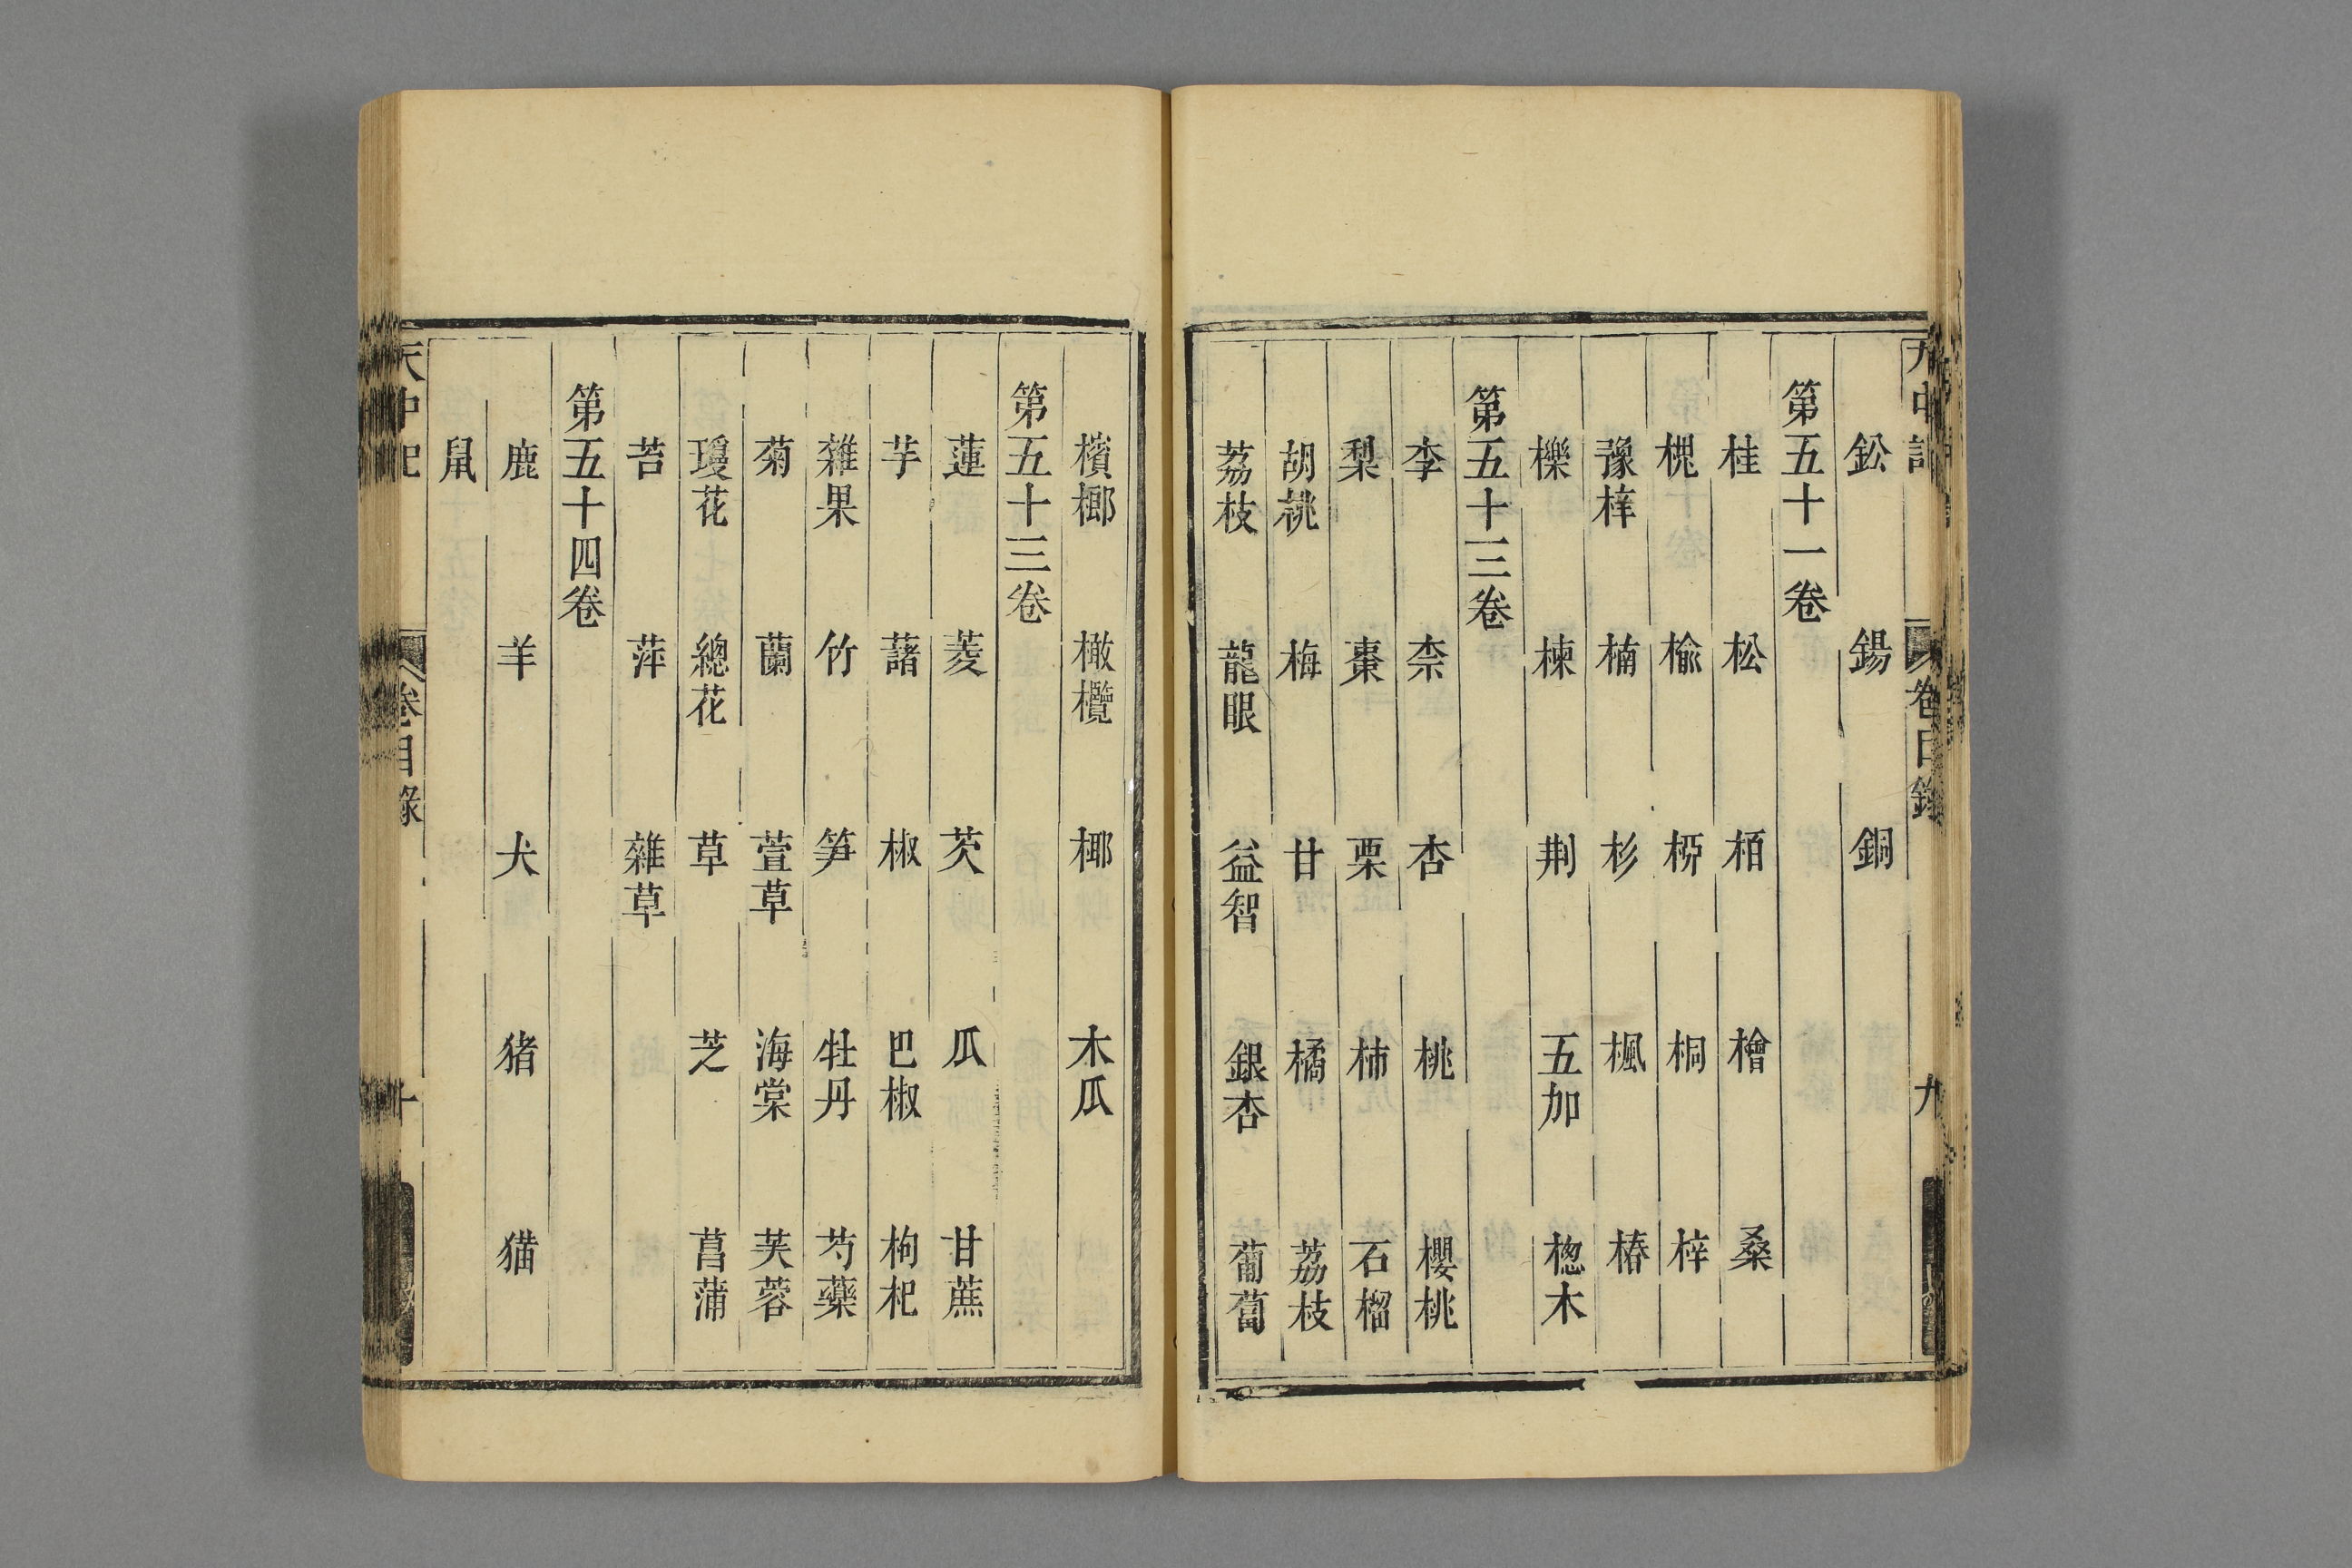 天中記 卷目錄 九
鈆 錫 銅
第五十一卷
桂 松 栢 檜 桑
槐 榆 栁 桐 梓
豫樟 楠 杉 楓 椿
櫟 楝 荆 五加 楤木
第五十三卷
李 柰 杏 桃 櫻桃
梨 棗 栗 柿 石榴
胡桃 梅 甘 橘 荔枝
荔枝 龍眼 益智 銀杏 葡萄
檳榔 橄欖 椰 木瓜
第五十三卷
蓮 菱 芡 瓜 甘蔗
芋 藷 椒 巴椒 枸杞
雜果 竹 笋 牡丹 芍藥
菊 蘭 萱草 海棠 芙蓉
瓊花 總花 草 芝 菖蒲
苔 萍 雜草
第五十四卷
鹿 羊 犬 猪 猫
鼠
天中記 卷目錄 十